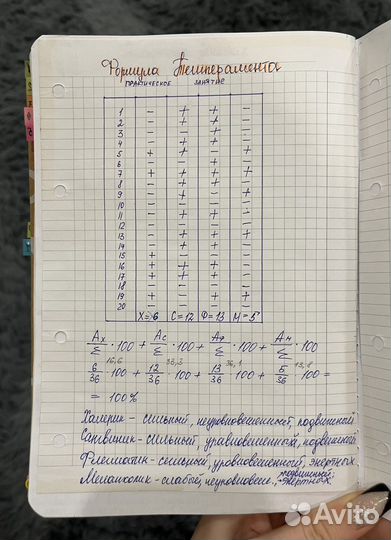 Формула Темперамента
ПРАКТИЧЕСКОЕ ЗАНЯТИЕ
1 − + + −
2 − + + −
3 − − + −
4 − + + −
5 + + − +
6 − − + −
7 + + + +
8 − + + −
9 − + + +
10 − − − −
11 − + + −
12 − − − −
13 − + + +
14 − + − −
15 + − − −
16 + + + −
17 + + + −
18 − − − −
19 + − + +
20 − − − −
Х=6 С=12 Ф=13 М=5
Ах/Σ · 100 + Ас/Σ · 100 + Аф/Σ · 100 + Ам/Σ · 100
16,6 33,3 36,1 13,8
6/36 · 100 + 12/36 · 100 + 13/36 · 100 + 5/36 · 100 =
= 100%
Холерик - сильный, неуровновешенный, подвижный
Сангвиник - сильный, уравновешенный, подвижный
Флегматик - сильный, уровновешенный, энертных
Меланхолик - слабые, неуровновеше., подвишный; энертных
Avito